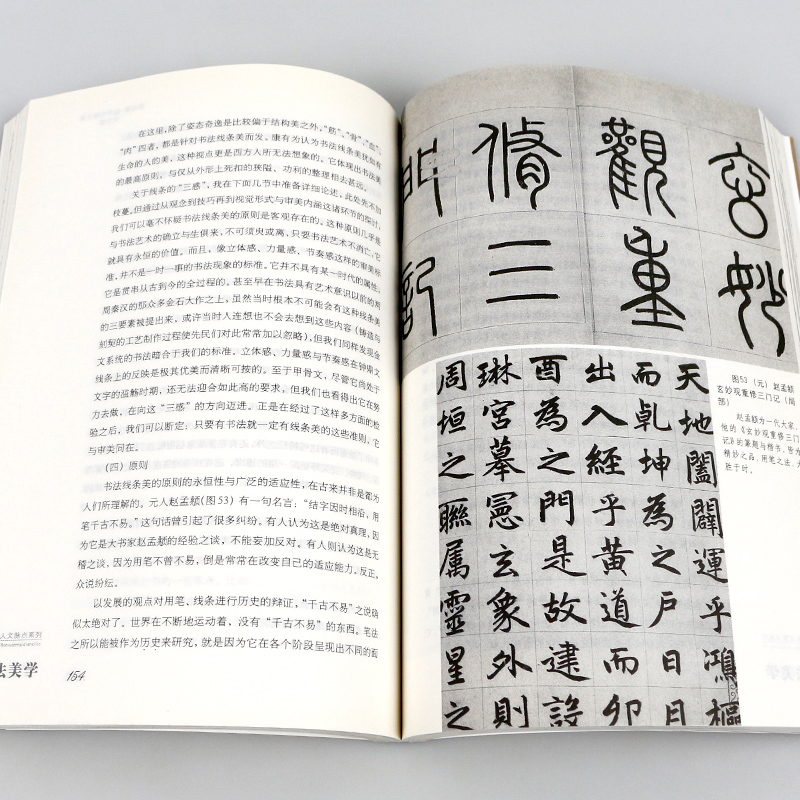 在这里,除了姿态奇逸是比较偏于结构美之外,“筋”、“骨”、“血”、
“肉”四者,都是针对书法线条美而发。康有为认为书法线条美犹如有
生命的人的美,这种视点更是西方人所无法想象的。它体现出书法美
的最高原则,与仅从外形上死扣的狭隘、功利的整理相去甚远。
关于线条的“三感”,我在下面几节中准备详细论述,此处先不加
枝蔓。但通过从观念到技巧再到视觉形式与审美内涵这诸环节的探讨,
我们可以毫不怀疑书法线条美的原则是客观存在的。这种原则几乎是
与书法艺术的确立与生俱来,不可须臾或离,只要书法艺术不消亡,它
就具有永恒的价值。而且,像立体感、力量感、节奏感这样的审美标
准,并不是一时一事的书法现象的标准。它并不具有某一时代的属性,
它是贯串从古到今的全过程的。甚至早在书法具有艺术意识以前的商
周秦汉的那众多金石大作之上,虽然当时根本不可能会有这种线条美
的三要素被提出来,或许当时人连想也不会去想到这些内容(铸造与
刻契的工艺制作过程使先民们对此常常加以忽略),但我们同样发现金
文系统的书法暗合于我们的标准。立体感、力量感与节奏感在钟鼎文
线条上的反映是极其优美而清晰可按的。至于甲骨文,尽管它尚处于
文字的滥觞时期,还无法迎合如此高的要求,但我们也看得出它在努
力去做,在向这“三感”的方向迈进。正是在经过了这样多方面的检
验之后,我们可以断定:只要有书法就一定有线条美的这些准则,它
与审美同在。
(四)原则
书法线条美的原则的永恒性与广泛的适应性,在古来并非是都为
人们所理解的。元人赵孟頫(图53)有一句名言:“结字因时相沿,用
笔千古不易。”这句话曾引起了很多纠纷。有人认为这是绝对真理,因
为它是大书家赵孟頫的经验之谈,不能妄加反对。有人则认为这是无
稽之谈,因为用笔不曾不易,倒是常常在改变自己的适应能力。反正,
众说纷纭。
以发展的观点对用笔、线条进行历史的辩证,“千古不易”之说确
似太绝对了。世界在不断地运动着,没有“千古不易”的东西。笔法
之所以能被作为历史来研究,就是因为它在各个阶段呈现出不同的面
人文融点系列
法美学
154
玄妙
觀重
脩三
門記
天地闔闢運乎鴻樞
而乾坤為之戶日月
出入經乎黃道而卯
酉為之門是故建設
琳宮摹寫玄象外則
周垣之聯属靈星之
图53 (元)赵孟頫
玄妙观重修三门记(局
部)
赵孟頫为一代大家,
他的《玄妙观重修三门
记》的篆题与楷书,皆为
精妙之品,用笔之法,
胜于时。